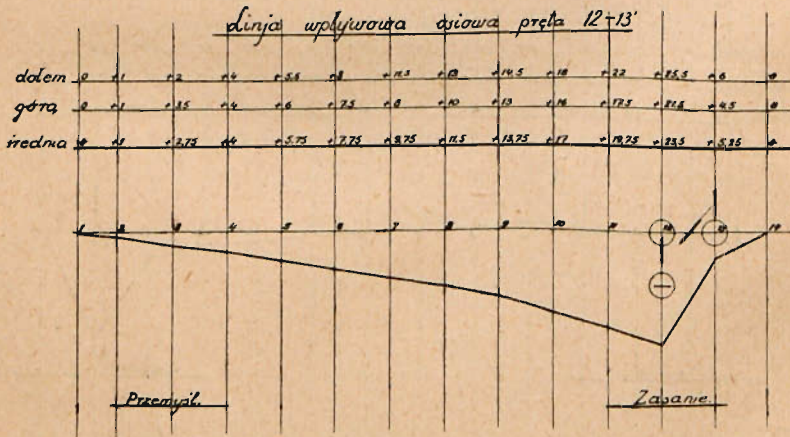 Linja wpływowa osiowa pręta 12-13'
dołem 0 +1 +2 +4 +5,5 +8 +11,5 +13 +14,5 +18 +22 +25,5 +6 0
górą 0 +1 +3,5 +4 +6 +7,5 +8 +10 +13 +16 +17,5 +21,5 +4,5 0
średnia 0 +1 +2,75 +4 +5,75 +7,75 +9,75 +11,5 +13,75 +17 +19,75 +23,5 +5,25 0
1 2 3 4 5 6 7 8 9 10 11 12 13 14
Przemyśl. Zasanie.